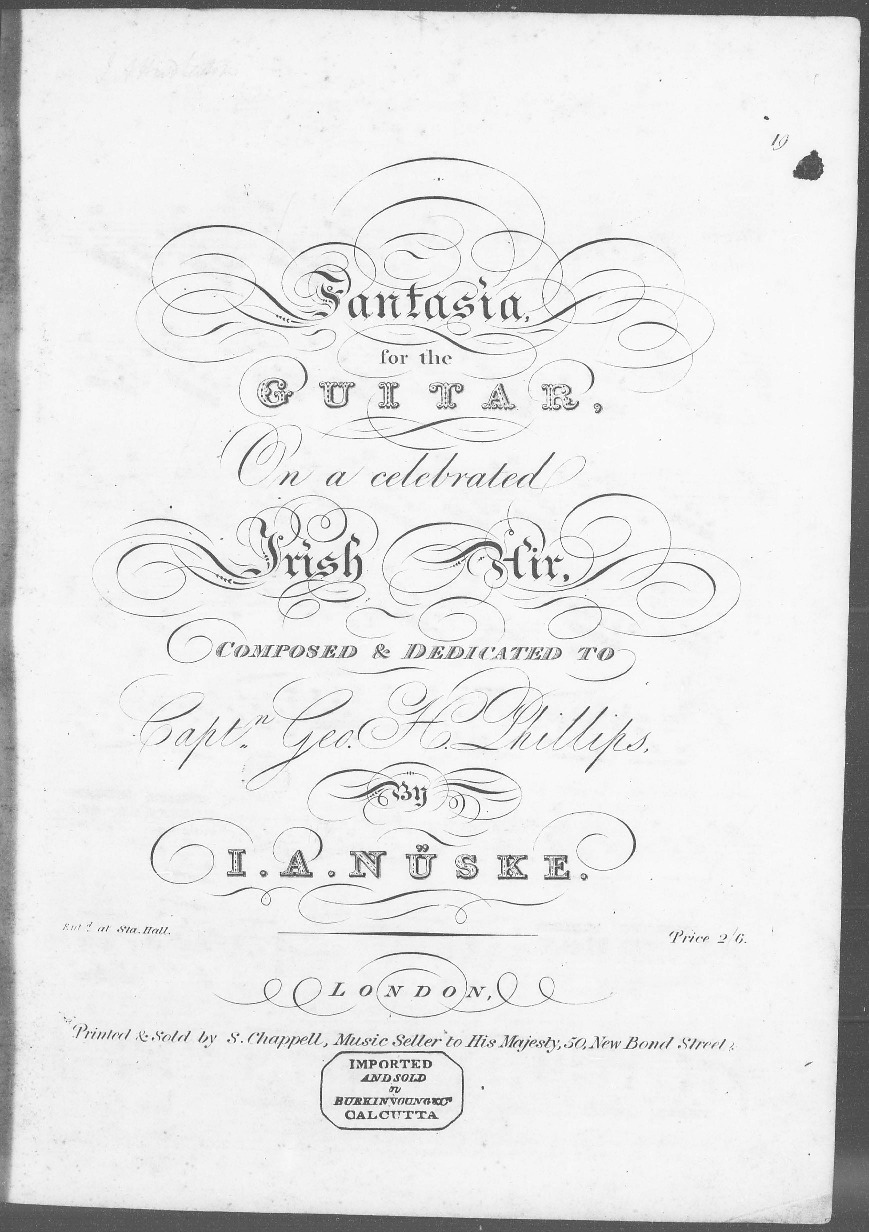 19
Fantasia,
for the
GUITAR,
On a celebrated
Irish Air,
COMPOSED & DEDICATED TO
Captn. Geo. H. Phillips,
By
I. A. NÜSKE.
Entd. at Sta. Hall.
Price 2/6.
LONDON,
Printed & Sold by S. Chappell, Music Seller to His Majesty, 50, New Bond Street.
IMPORTED
AND SOLD
BURKINYOUNG & Co
CALCUTTA